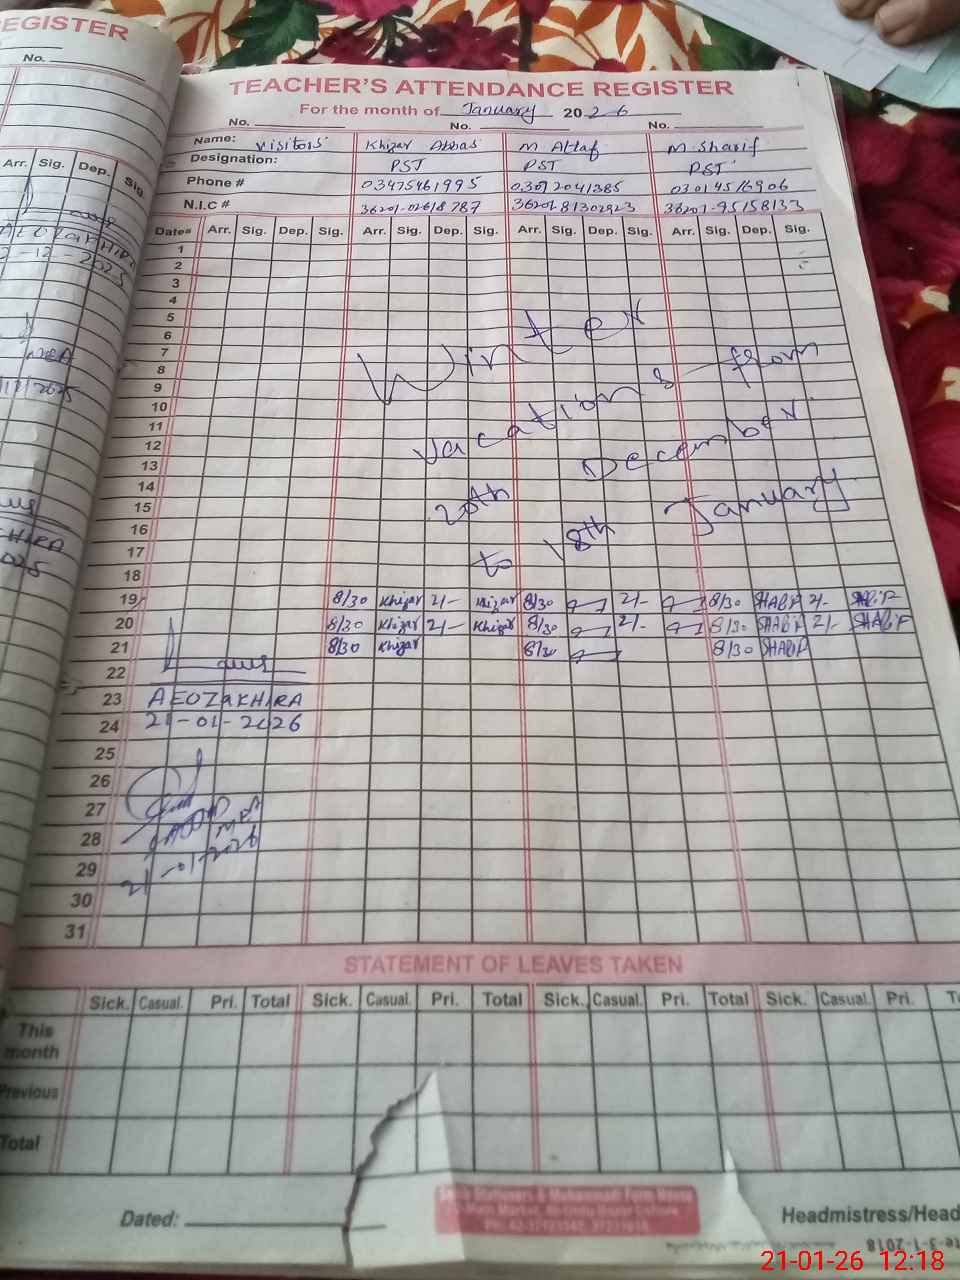 EGISTER
No.
Arr. Sig. Dep. Sig
TEACHER'S ATTENDANCE REGISTER
For the month of January 2026
No. No. No.
Name: visitors Khizar Abbas M Altaf M Sharif
Designation: PST PST PST
Phone # 03475461995 03014516906
N.I.C #
Dates Arr. Sig. Dep. Sig. Arr. Sig. Dep. Sig. Arr. Sig. Dep. Sig. Arr. Sig. Dep. Sig.
1
2
3
4
5
6
7
8
9
10
11
12
13
14
15
16
17
18
Winter
vacations from
20th December
to 18th January
19 8/30 Khizar 2/- Khizar 8/30 2/- 8/30 SHARIF 2/- SHARIF
20 8/30 Khizar 2/- Khizar 8/30 2/- 8/30 SHARIF 2/- SHARIF
21 8/30 Khizar 8/30 8/30 SHARIF
22
23 AEO ZAKHIRA
24 21-01-2026
25
26
27
28
21-01-2026
29
30
31
STATEMENT OF LEAVES TAKEN
Sick. Casual. Pri. Total Sick. Casual. Pri. Total Sick. Casual. Pri. Total Sick. Casual. Pri.
This month
Previous
Total
Dated:
Headmistress/Head
21-01-26 12:18